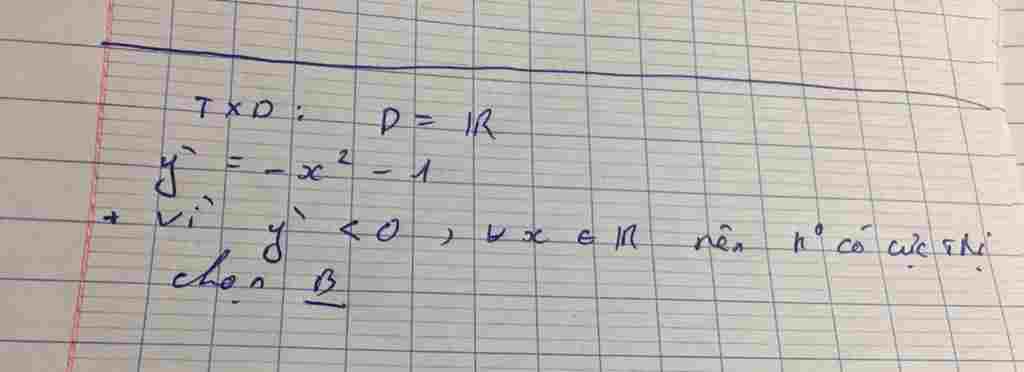 TXD: D = ℝ
y' = -x² - 1
+ Vì y' < 0, ∀x ∈ ℝ nên h° có cực trị
chọn B